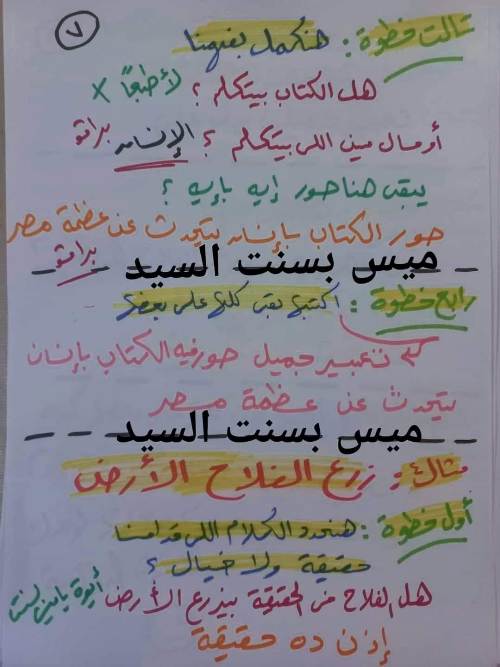 ٧
تالت خطوة : هنكمل بفهمنا
هل الكتاب بيتكلم ؟ لأ طبعًا ×
أومال مين اللى بيتكلم ؟ الإنسان برافو
يبقى هنا صور إيه بإيه ؟
صور الكتاب بإنسان يتحدث عن عظمة مصر
برافو
ميس بسنت السيد
رابع خطوة : اكتبها بقى كلها على بعضها
تعبير جميل صور فيه الكتاب بإنسان
يتحدث عن عظمة مصر
ميس بسنت السيد
مثال : زرع الفلاح الأرض
أول خطوة : هنحدد الكلام اللى قدامنا
حقيقة ولا خيال ؟
هل الفلاح فى الحقيقة بيزرع الأرض أيوة يا ميس بسنت
إذن ده حقيقة